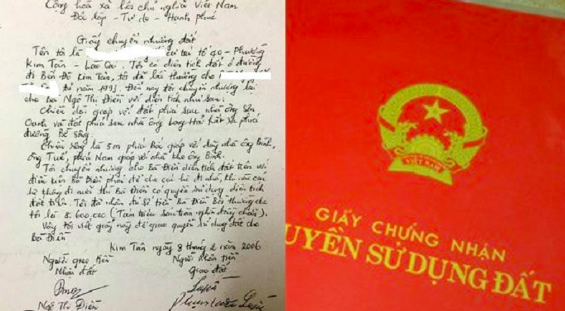 Cộng hòa xã hội chủ nghĩa Việt Nam
Độc lập - Tự do - Hạnh phúc
Giấy chuyển nhường đất
Tên tôi là tổ 90 - Phường
Kim Tân - Lào Cai. Tôi có diện tích đất ở đường
đi Bến Đá Kim Tân, tôi đã bồi thường cho
từ năm 1993. Đến nay tôi chuyển nhường lại
cho bà Ngô Thị Điền với diện tích như sau:
Chiều dài giáp với đất phía sau nhà ông
Oanh và đất phía sau nhà ông
đường Bê
Chiều rộng là 5m phía Bắc giáp với nhà ông Bình,
ông Tuế, phía Nam giáp với nhà ông Bình.
Tôi chuyển nhường cho Bà Điền diện tích đất trên với
điều kiện Bà Điền phải để cho
thì Bà Điền có quyền sử dụng diện tích
đất trên. Tôi đã nhận đủ số tiền Bà Điền bồi thường cho
tôi là 8.600.000 (Tám triệu sáu trăm nghìn đồng chẵn).
Vậy tôi viết giấy này để giao quyền sử dụng đất cho
Bà Điền
Kim Tân ngày 8 tháng 2006
Người giao tiền
Nhận đất
Người nhận tiền
Giao đất
Ngô Thị Điền
VIỆT NAM
GIẤY CHỨNG NHẬN
UYỀN SỬ DỤNG ĐẤT